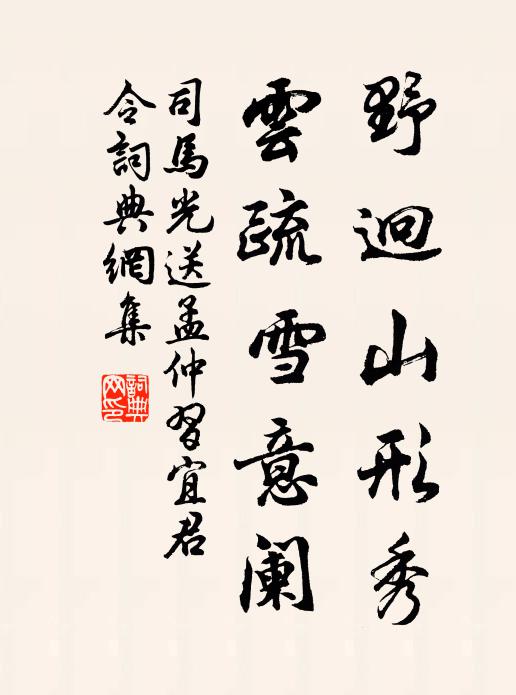 野迥山形秀
雲疏雪意闌
司馬光送孟仲習宜君
令詞典網集
詞典网印